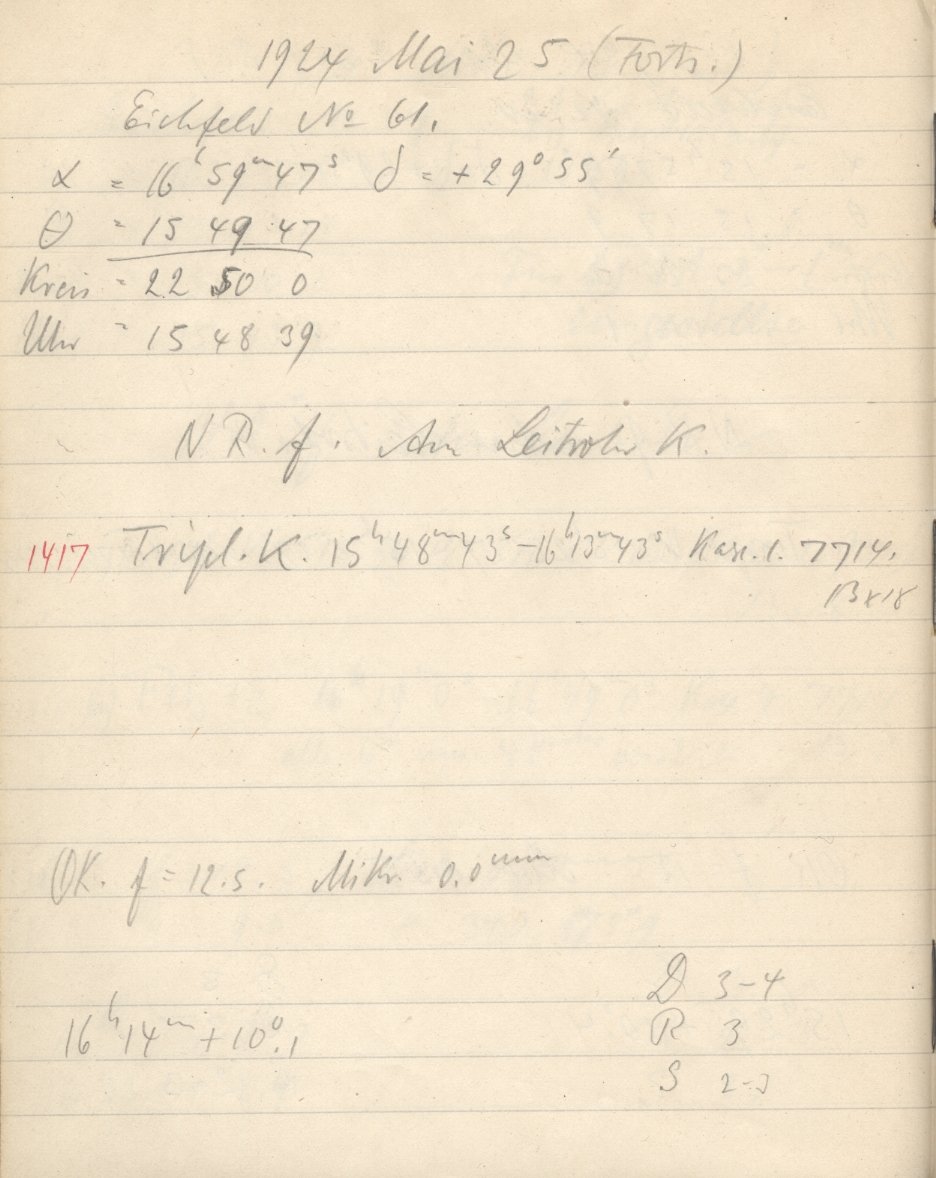 1924 Mai 25 (Forts.)
Eichfeld No 61.
α = 16ʰ 59ᵐ 47ˢ δ = +29° 55'
θ = 15 49 47
Kreis = 22 50 0
Uhr = 15 48 39
N R. f. Am Leitrohr K.
1417 Tripl. K. 15ʰ48ᵐ43ˢ–16ʰ13ᵐ43ˢ Kass. 1. 7714.
13x18
OK. f = 12.5. Mikr. 0.0ᵐᵐ
D 3–4
16ʰ14ᵐ +10°.1 R 3
S 2–3